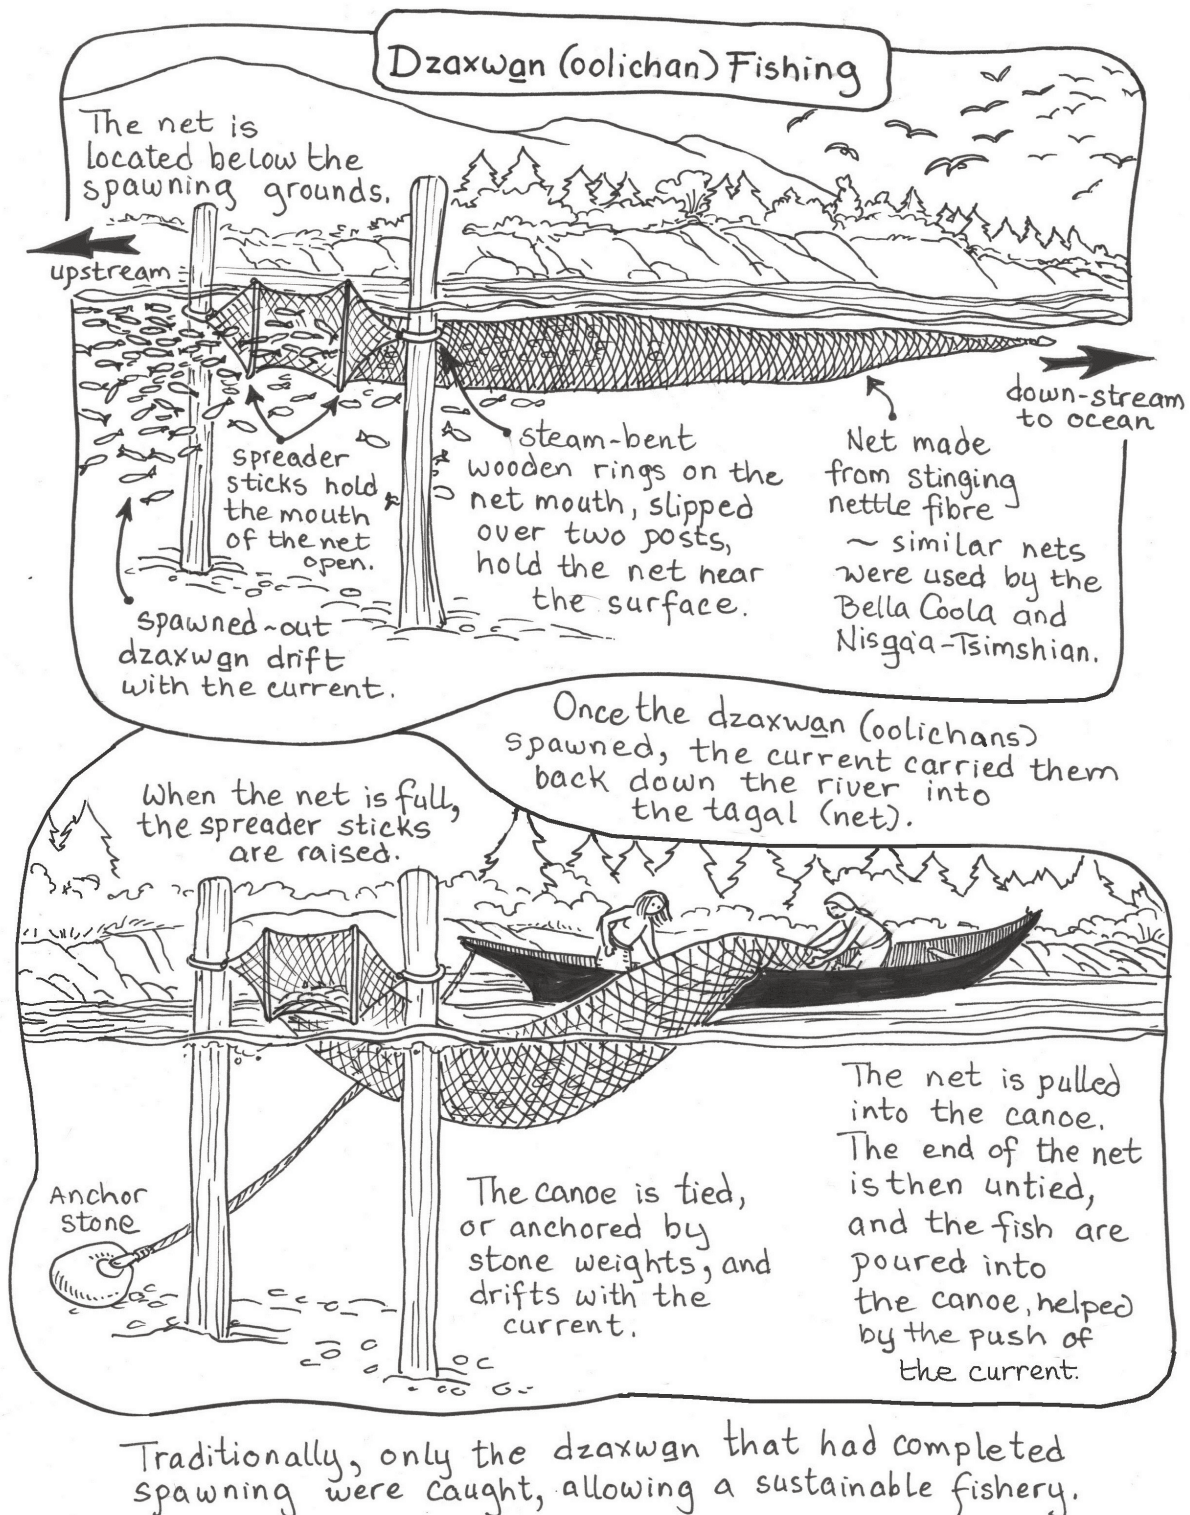 Dzaxwa̲n (oolichan) Fishing
The net is
located below the
spawning grounds.
upstream
down-stream
to ocean
spreader
sticks hold
the mouth
of the net
open.
steam-bent
wooden rings on the
net mouth, slipped
over two posts,
hold the net near
the surface.
Net made
from stinging
nettle fibre
~ similar nets
were used by the
Bella Coola and
Nisga'a-Tsimshian.
spawned-out
dzaxwa̲n drift
with the current.
Once the dzaxwa̲n (oolichans)
spawned, the current carried them
back down the river into
the tagal (net).
When the net is full,
the spreader sticks
are raised.
Anchor
stone
The canoe is tied,
or anchored by
stone weights, and
drifts with the
current.
The net is pulled
into the canoe.
The end of the net
is then untied,
and the fish are
poured into
the canoe, helped
by the push of
the current.
Traditionally, only the dzaxwa̲n that had completed
spawning were caught, allowing a sustainable fishery.